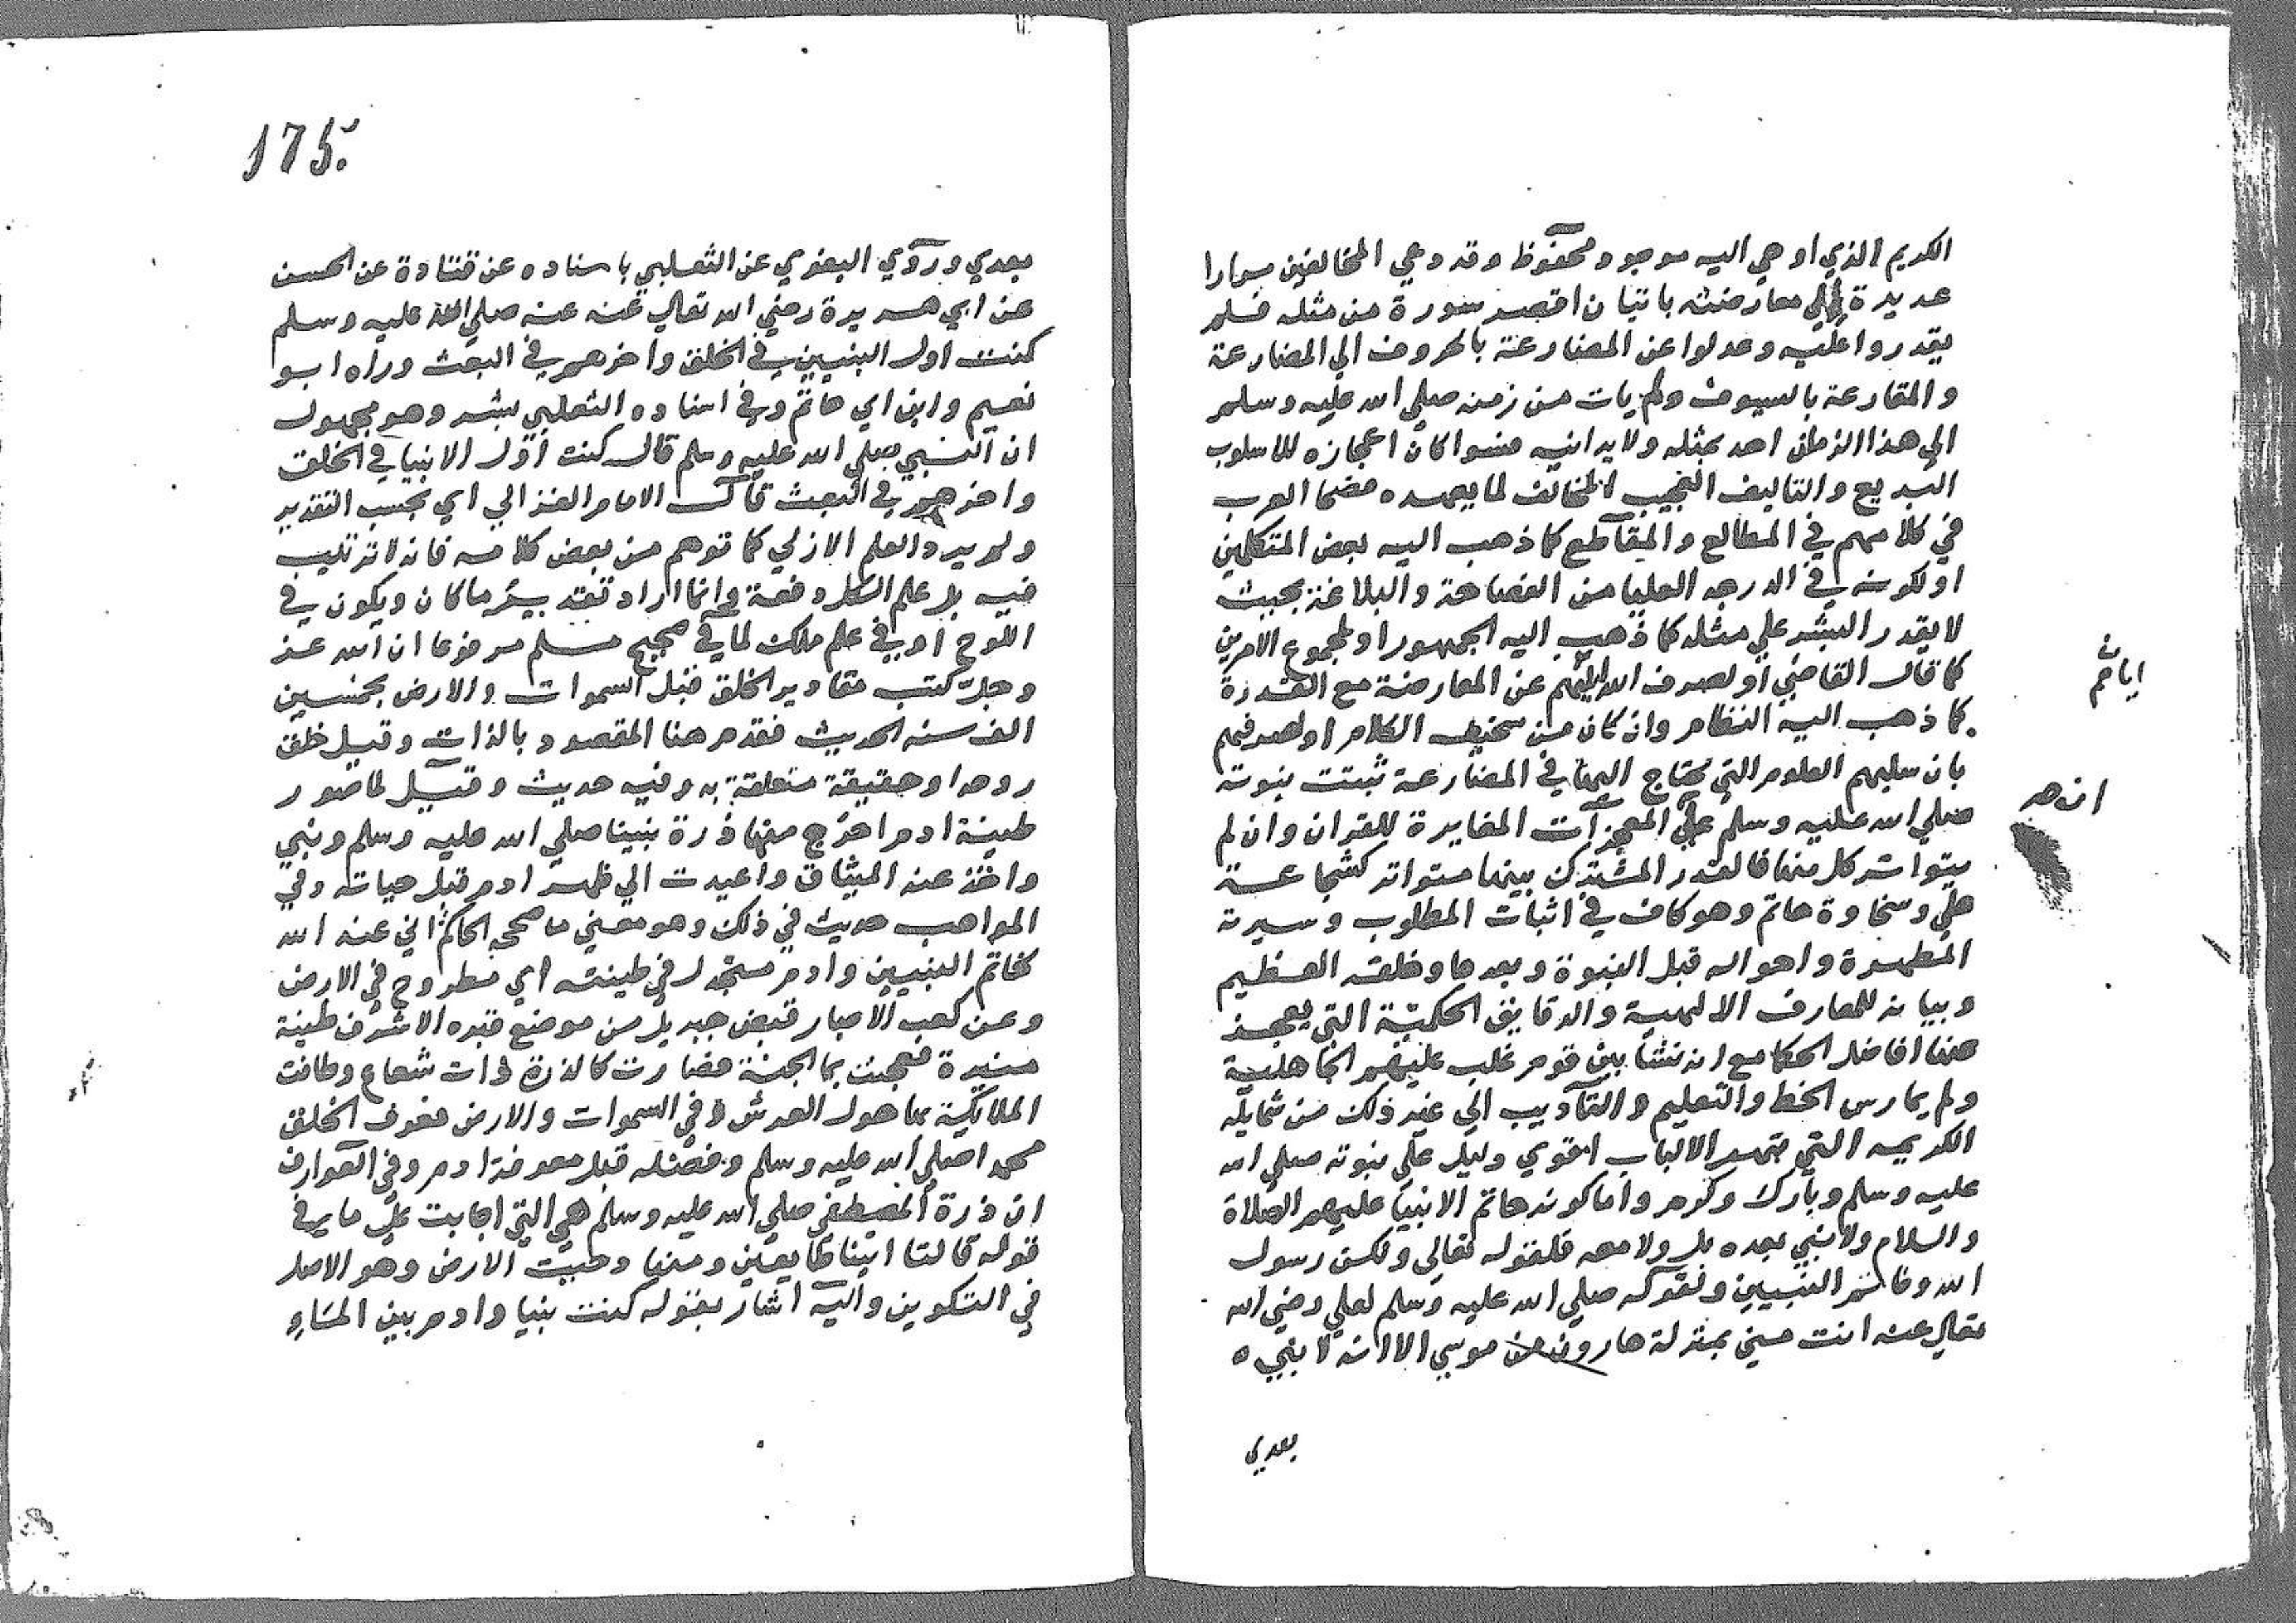 الكريم الذي اوحي اليه موجود محفوظ وقد دعي المخالفين مرارا
عديدة الي معارضته باتيان اقصر سورة من مثله فلم
يقدروا عليه وعدلوا عن المعارضة بالحروف الي المضارعة
والمقارعة بالسيوف ولم يات من زمنه صلي الله عليه وسلم
الي هذا الزمان احد بمثله ولا يدانيه وسوا كان اعجازه للاسلوب
البديع والتاليف العجيب المخالف لما يعهده فصحا العرب
في كلامهم في المطالع والمقاطع كما ذهب اليه بعض المتكلمين
او لكونه في الدرجه العليا من الفصاحة والبلاغة بحيث
لا يقدر البشر علي مثله كما ذهب اليه الجمهور او لمجموع الامرين
كما قال القاضي او لصرف الله اياهم عن المعارضة مع القدرة
كما ذهب اليه النظام وان كان من سخيف الكلام او لصرفهم
بان سلبهم العلوم التي يحتاج اليها في المضارعة ثبتت نبوته
صلي الله عليه وسلم علي المعجزات المغايرة للقران وان لم
يتواتر كل منها فالقدر المشترك بينها متواتر كشجاعة
علي وسخاوة حاتم وهو كاف في اثبات المطلوب وسيرته
المطهرة واحواله قبل النبوة وبعدها وخلقه العظيم
وبيانه للمعارف الالهية والدقايق الحكمية التي يعجز
عنها افاضل الحكما مع انه نشا بين قوم غلب عليهم الجاهلية
ولم يمارس الخط والتعليم والتآديب الي غير ذلك من شمايله
الكريمه التي تبهر الالباب اقوي دليل علي نبوته صلي الله
عليه وسلم وبارك وكرم واما كونه خاتم الانبيا عليهم الصلاة
والسلام ولا نبي بعده بل ولا معه فلقوله تعالي ولكن رسول
الله وخاتم النبيين ولقوله صلي الله عليه وسلم لعلي رضي الله
تعالي عنه انت مني بمنزلة هارون من موسي الا انه لا نبي
بعدي
ان هـ
175
بعدي وروي البغوي عن الثعلبي باسناده عن قتادة عن الحسن
عن ابي هريرة رضي الله تعالي عنه عنه صلي الله عليه وسلم
كنت اول النبيين في الخلق واخرهم في البعث ورواه ابو
نعيم وابن ابي حاتم وفي اسناده الثعلبي بشر وهو مجهول
ان النبي صلي الله عليه وسلم قال كنت اول الانبيا في الخلق
واخرهم في البعث قال الامام الغزالي اي بحسب التقدير
ولم يرد العلم الازلي كما توهم من بعض كلامه فانه لا ترتيب
فيه بل علم الكل دفعة وانما اراد تقدير ما كان ويكون في
اللوح او في علم ملك لما في صحيح مسلم مرفوعا ان الله عز
وجل كتب مقادير الخلق قبل السموات والارض بخمسين
الف سنه الحديث فقدم هنا المقصود بالذات وقيل خلق
روحه او حقيقة متعلقة به وفيه حديث وقيل لما صور
طينة ادم اخرج منها ذرة نبينا صلي الله عليه وسلم ونبي
واخذ عنه الميثاق واعيدت الي ظهر ادم قبل حياته وفي
المواهب حديث في ذلك وهو معني ما صححه الحاكم اني عند الله
لخاتم النبيين وادم منجدل في طينته اي مطروح في الارض
وعن كعب الاحبار قبض جبريل من موضع قبره الاشرف طينة
منيرة فعجنت بما الجنة فصارت كالذرة ذات شعاع وطافت
الملائكة بها حول العرش وفي السموات والارض فعرف الخلق
محمدا صلي الله عليه وسلم وفضله قبل معرفة ادم وفي العوارف
ان ذرة المصطفي صلي الله عليه وسلم هي التي اجابت علي ما في
قوله قالتا اتينا طايعين ومنها دحيت الارض وهو الاصل
في التكوين واليه اشار بقوله كنت نبيا وادم بين الماء